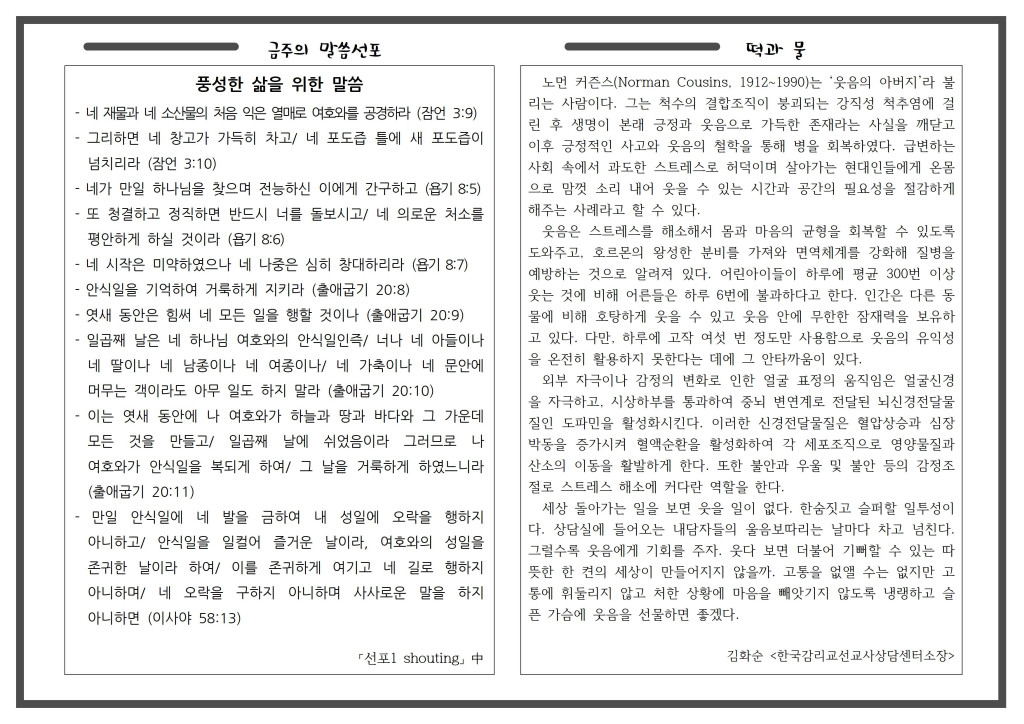 금주의 말씀선포
풍성한 삶을 위한 말씀
- 네 재물과 네 소산물의 처음 익은 열매로 여호와를 공경하라 (잠언 3:9)
- 그리하면 네 창고가 가득히 차고/ 네 포도즙 틀에 새 포도즙이
넘치리라 (잠언 3:10)
- 네가 만일 하나님을 찾으며 전능하신 이에게 간구하고 (욥기 8:5)
- 또 청결하고 정직하면 반드시 너를 돌보시고/ 네 의로운 처소를
평안하게 하실 것이라 (욥기 8:6)
- 네 시작은 미약하였으나 네 나중은 심히 창대하리라 (욥기 8:7)
- 안식일을 기억하여 거룩하게 지키라 (출애굽기 20:8)
- 엿새 동안은 힘써 네 모든 일을 행할 것이나 (출애굽기 20:9)
- 일곱째 날은 네 하나님 여호와의 안식일인즉/ 너나 네 아들이나
네 딸이나 네 남종이나 네 여종이나/ 네 가축이나 네 문안에
머무는 객이라도 아무 일도 하지 말라 (출애굽기 20:10)
- 이는 엿새 동안에 나 여호와가 하늘과 땅과 바다와 그 가운데
모든 것을 만들고/ 일곱째 날에 쉬었음이라 그러므로 나
여호와가 안식일을 복되게 하여/ 그 날을 거룩하게 하였느니라
(출애굽기 20:11)
- 만일 안식일에 네 발을 금하여 내 성일에 오락을 행하지
아니하고/ 안식일을 일컬어 즐거운 날이라, 여호와의 성일을
존귀한 날이라 하여/ 이를 존귀하게 여기고 네 길로 행하지
아니하며/ 네 오락을 구하지 아니하며 사사로운 말을 하지
아니하면 (이사야 58:13)
「선포1 shouting」中
떡과 물
노먼 커즌스(Norman Cousins, 1912~1990)는 ‘웃음의 아버지’라 불
리는 사람이다. 그는 척수의 결합조직이 붕괴되는 강직성 척추염에 걸
린 후 생명이 본래 긍정과 웃음으로 가득한 존재라는 사실을 깨닫고
이후 긍정적인 사고와 웃음의 철학을 통해 병을 회복하였다. 급변하는
사회 속에서 과도한 스트레스로 허덕이며 살아가는 현대인들에게 온몸
으로 맘껏 소리 내어 웃을 수 있는 시간과 공간의 필요성을 절감하게
해주는 사례라고 할 수 있다.
웃음은 스트레스를 해소해서 몸과 마음의 균형을 회복할 수 있도록
도와주고, 호르몬의 왕성한 분비를 가져와 면역체계를 강화해 질병을
예방하는 것으로 알려져 있다. 어린아이들이 하루에 평균 300번 이상
웃는 것에 비해 어른들은 하루 6번에 불과하다고 한다. 인간은 다른 동
물에 비해 호탕하게 웃을 수 있고 웃음 안에 무한한 잠재력을 보유하
고 있다. 다만, 하루에 고작 여섯 번 정도만 사용함으로 웃음의 유익성
을 온전히 활용하지 못한다는 데에 그 안타까움이 있다.
외부 자극이나 감정의 변화로 인한 얼굴 표정의 움직임은 얼굴신경
을 자극하고, 시상하부를 통과하여 중뇌 변연계로 전달된 뇌신경전달물
질인 도파민을 활성화시킨다. 이러한 신경전달물질은 혈압상승과 심장
박동을 증가시켜 혈액순환을 활성화하여 각 세포조직으로 영양물질과
산소의 이동을 활발하게 한다. 또한 불안과 우울 및 불안 등의 감정조
절로 스트레스 해소에 커다란 역할을 한다.
세상 돌아가는 일을 보면 웃을 일이 없다. 한숨짓고 슬퍼할 일투성이
다. 상담실에 들어오는 내담자들의 울음보따리는 날마다 차고 넘친다.
그럴수록 웃음에게 기회를 주자. 웃다 보면 더불어 기뻐할 수 있는 따
뜻한 한 켠의 세상이 만들어지지 않을까. 고통을 없앨 수는 없지만 고
통에 휘둘리지 않고 처한 상황에 마음을 빼앗기지 않도록 냉랭하고 슬
픈 가슴에 웃음을 선물하면 좋겠다.
김화순 <한국감리교선교사상담센터소장>